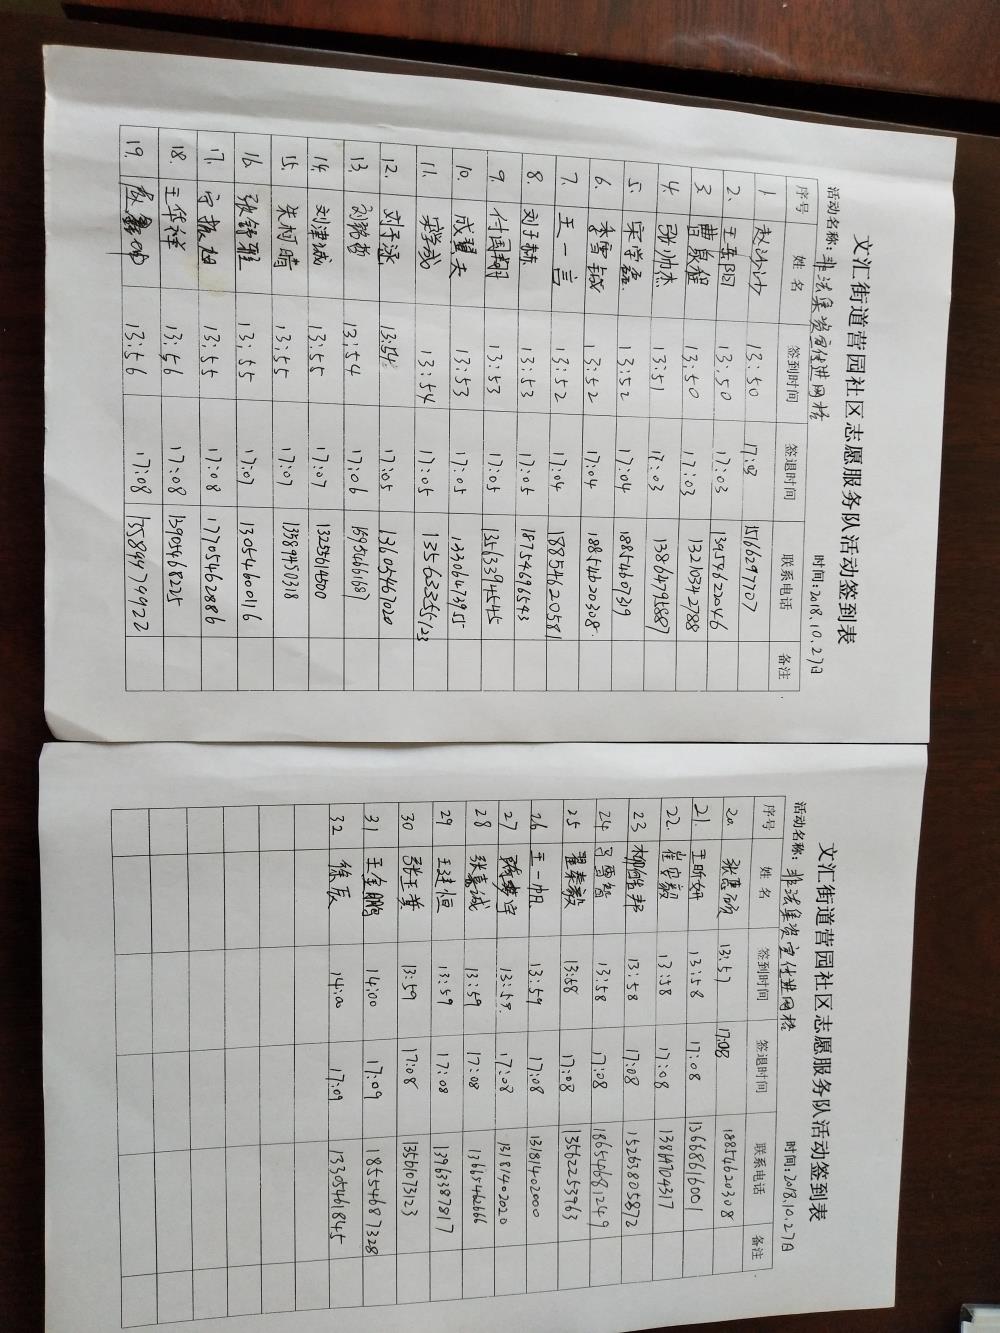 文汇街道营园社区志愿服务队活动签到表
活动名称：非法集资宣传进网格 时间：2018.10.27日
序号 姓名 签到时间 签退时间 联系电话 备注
1. 赵沙沙 13:50 15166297707
2. 王岳阳 13:50 17:03 13954622046
3 曹啟程 13:50 17:03 13210342788
4. 张帅杰 13:51 17:03 13864795887
5. 宋学磊 13:52 17:04 18854607319
6. 李雪钺 13:52 17:04
7. 王一言 13:52 17:04 18854620581
8. 刘子赫 13:53 17:05 18754696543
9. 付国翔 13:53 17:05 13563394545
10. 成翼夫 13:53 17:05 13306473955
11. 13:54 17:05 13563355123
12. 刘子涵 13:54 17:05 13605467020
13. 刘铭哲 13:54 17:06 15954661687
14. 刘津诚 13:55 17:07 13255614500
15. 朱柯晴 13:55 17:07 13589450318
16. 张舒雅 13:55 17:07 13054600116
17. 宁振柏 13:55 17:08 17705462886
18. 王华祥 13:56 17:08 13905468225
19. 13:56 17:08 13589979922
文汇街道营园社区志愿服务队活动签到表
活动名称：非法集资宣传进网格 时间：2018.10.27日
序号 姓名 签到时间 签退时间 联系电话 备注
20. 张惠硕 13:57 17:08 18854620308
21. 王昕妍 13:58 17:08 13668616001
22. 崔皃毅 13:58 17:08 13814704317
23 13:58 17:08 15263805872
24 13:58 17:08 18654681249
25 翟秦毅 13:58 17:08 13562253963
26 王一帆 13:59 17:08 13181402000
27 13:59 17:08 13181402020
28 张嘉诚 13:59 17:08 13665462666
29 王建恒 13:59 17:08 13963387817
30 张玉箐 13:59 17:08 13561073123
31 王金鹏 14:00 17:09 18554687328
32 徐辰 14:00 17:09 13305461845